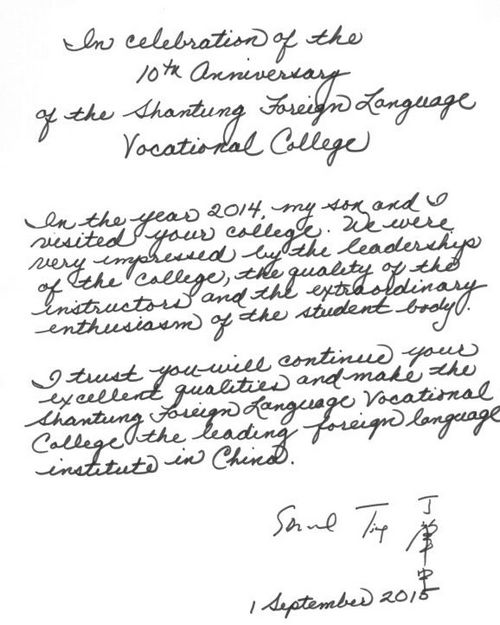 In celebration of the
10th Anniversary
of the Shantung Foreign Language
Vocational College
In the year 2014, my son and I
visited your college. We were
very impressed by the leadership
of the college, the quality of the
instructors and the extraordinary
enthusiasm of the student body.
I trust you will continue your
excellent qualities and make the
Shantung Foreign Language Vocational
College the leading foreign language
institute in China.
Samuel Ting 丁肇中
1 September 2015